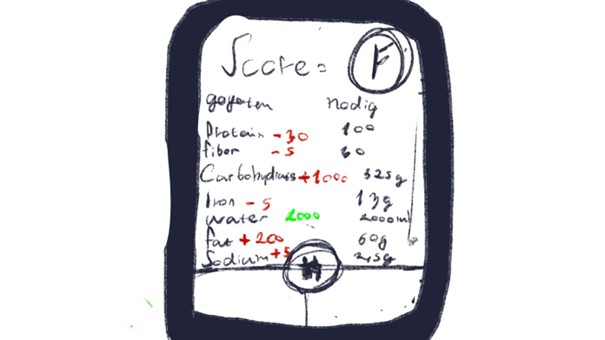 Score = F
gegeten nodig
Protein -30 100
fiber -5
Carbohydraes +1000 325g
Iron -5 13g
water 2000 2000ml
fat +200 60g
Sodium +5
H